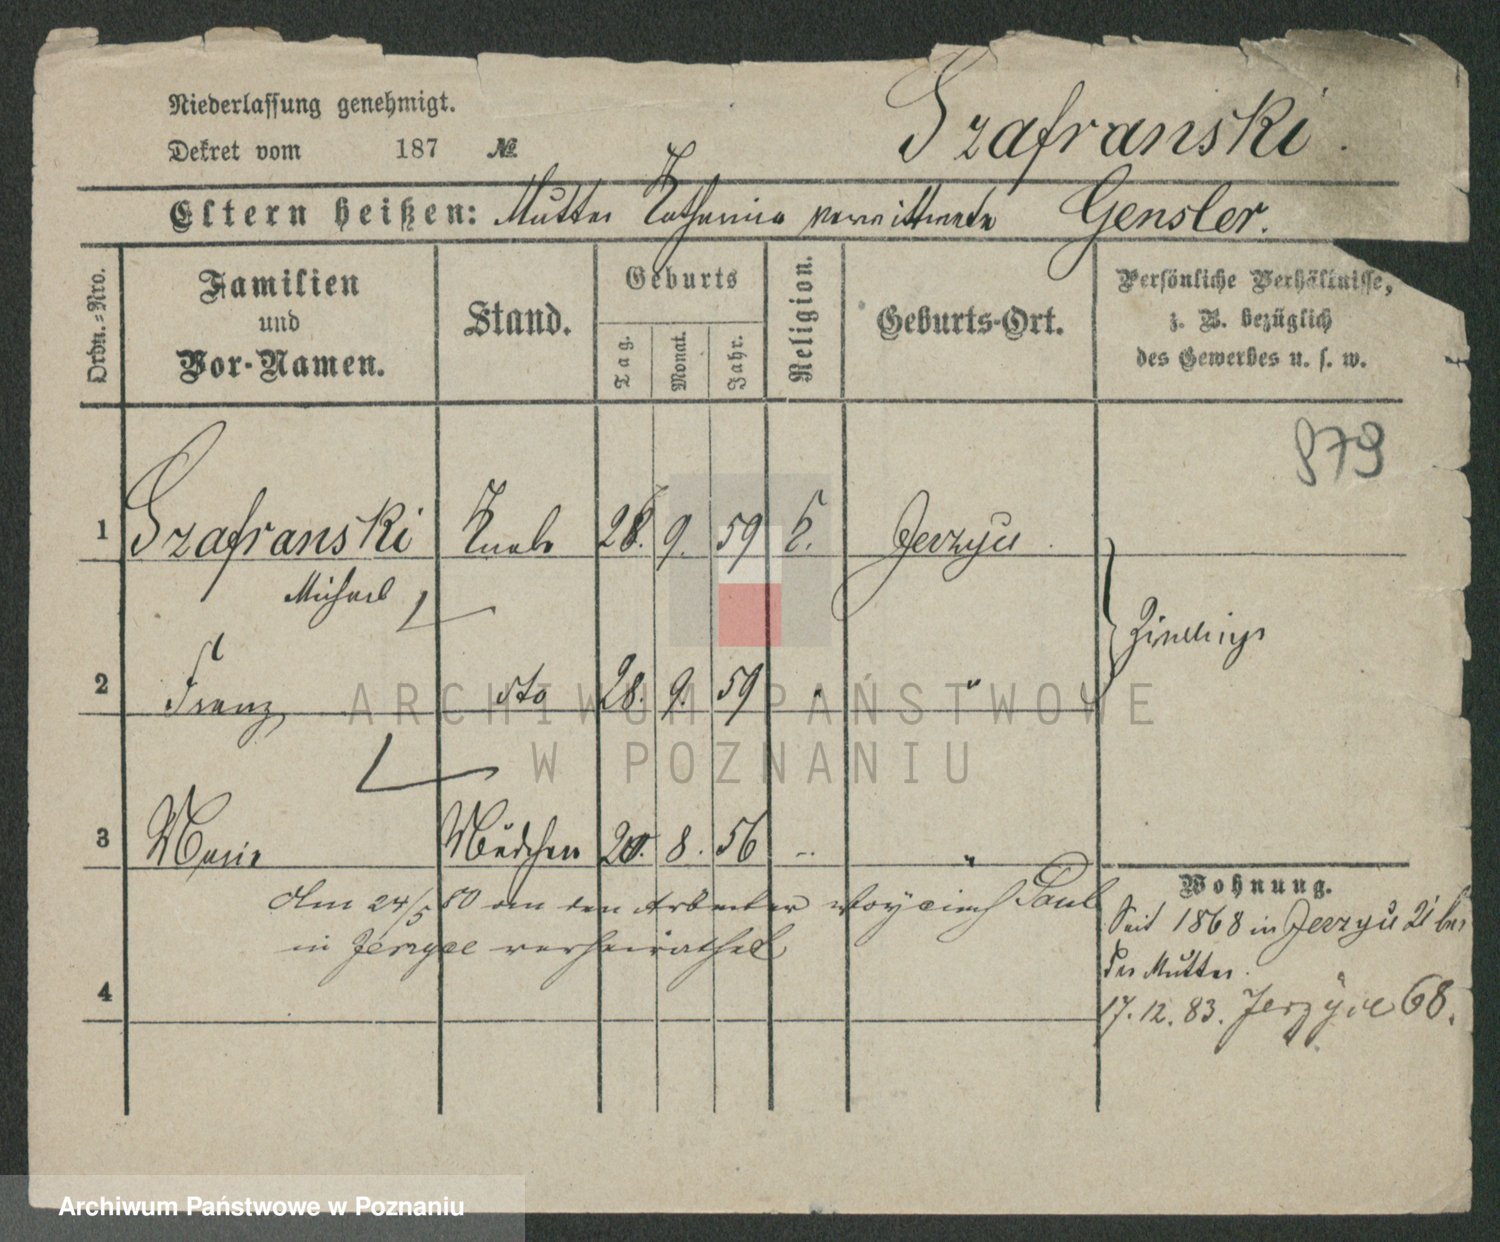 Niederlassung genehmigt.
Dekret vom 187 №
Szafranski.
Eltern heißen: Mutter Katharina verwittwete Gensler.
Ordn.-Nro.
Familien und Vor-Namen.
Stand.
Geburts
Tag.
Monat.
Jahr.
Religion.
Geburts-Ort.
Persönliche Verhältnisse,
z. B. bezüglich
des Gewerbes u. s. w.
879
1 Szafranski Knabe 28. 9. 59 k. Jerzyce
Michael
Zwillinge
2 Franz dto 28. 9. 59 " "
3 Marie Mädchen 20. 8. 56 " "
Am 24/5 80 an den Arbeiter Woyciech Paul
in Jerzyce verheirathet
4
Wohnung.
Seit 1868 in Jerzyce 21 bei
der Mutter.
17.12.83. Jerzyce 68.
ARCHIWUM PAŃSTWOWE
W POZNANIU
Archiwum Państwowe w Poznaniu